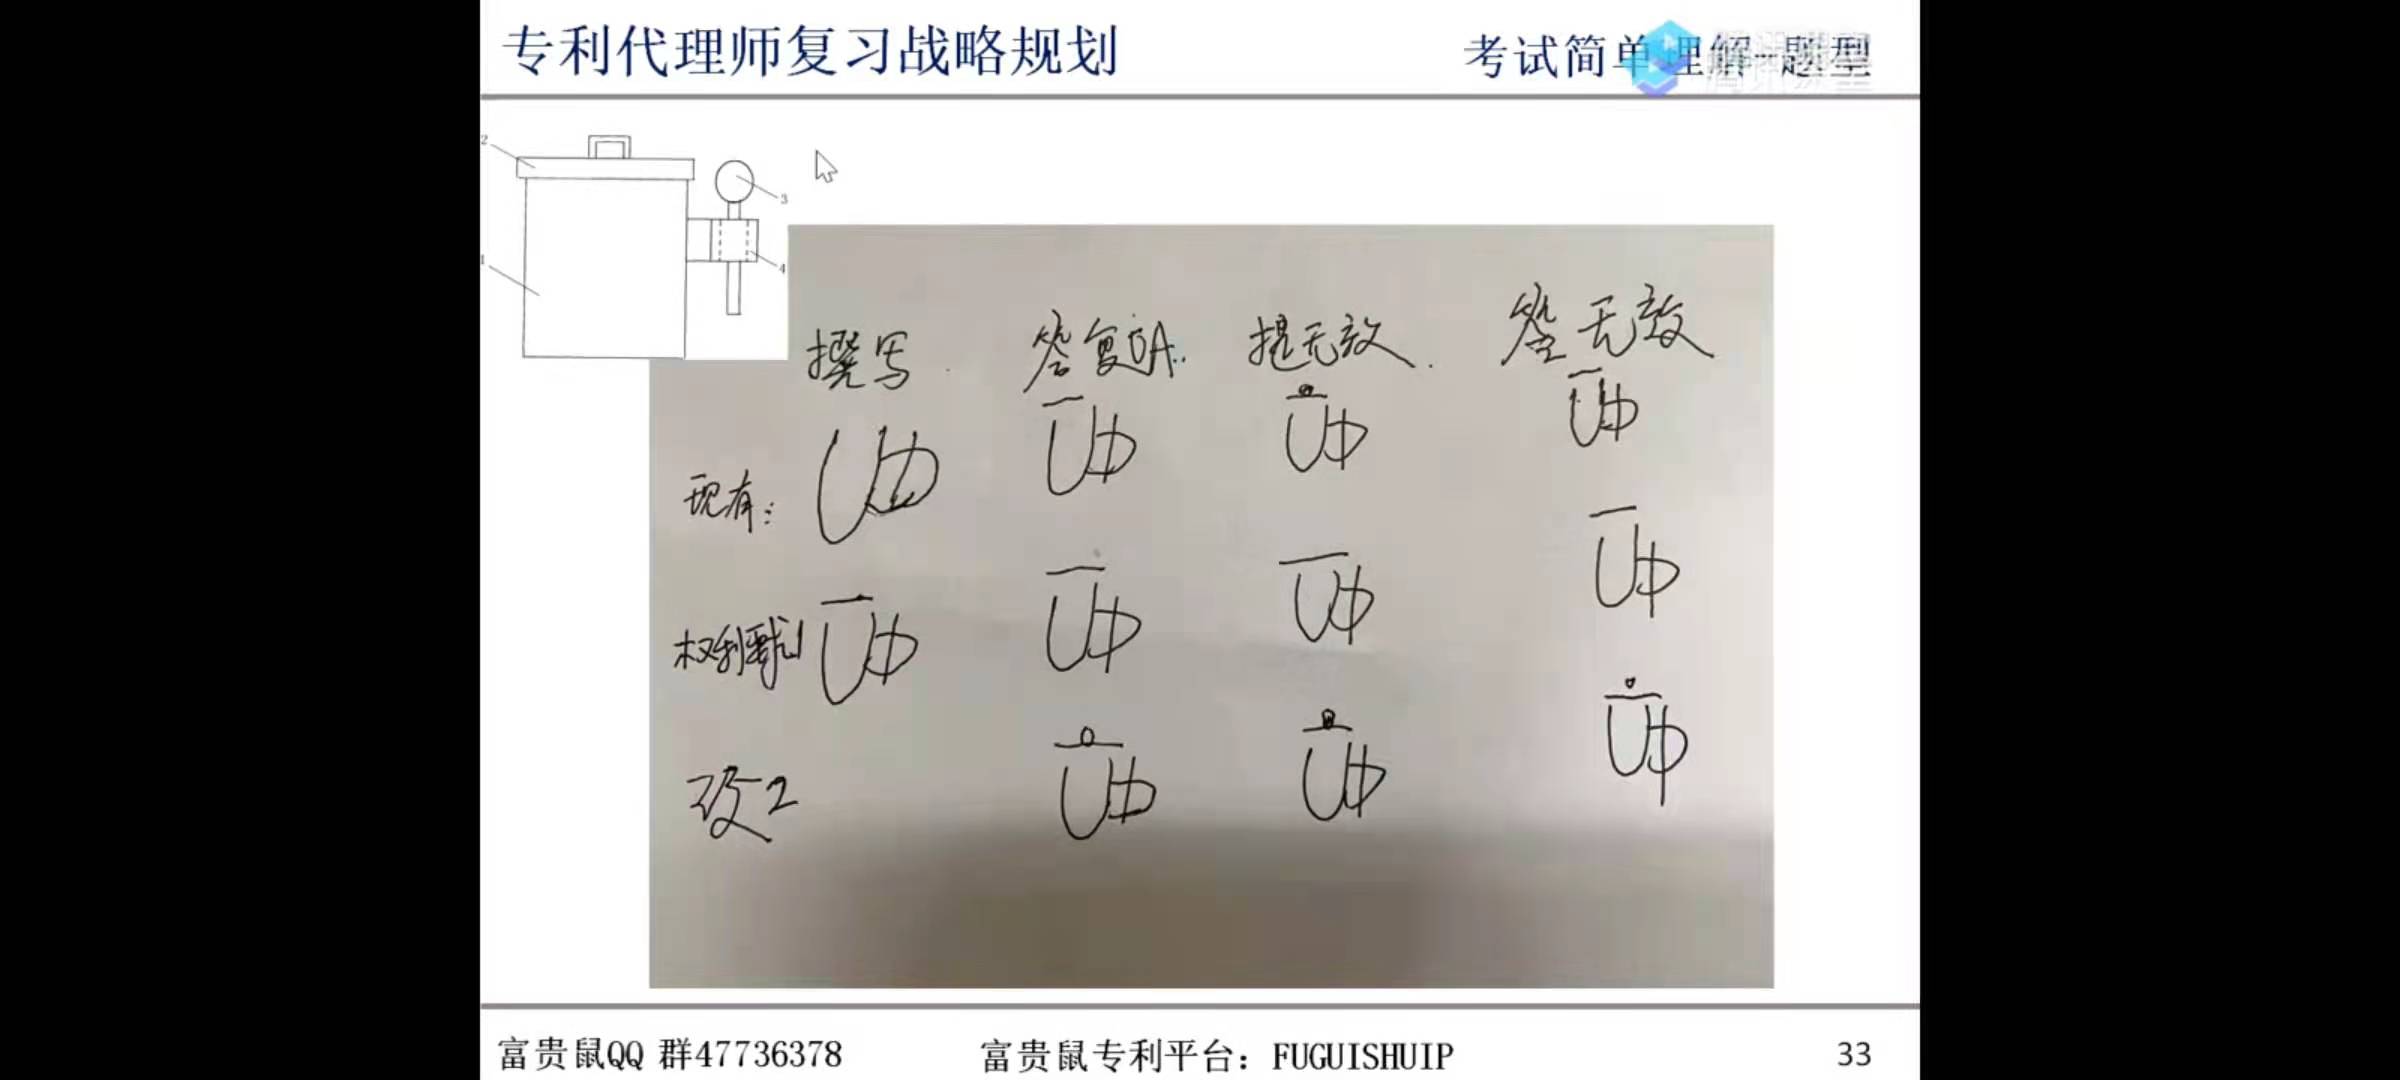 专利代理师复习战略规划
考试简单理解-题型
2
3
4
1
撰写 答复OA.. 提无效. 答无效
现有:
权利要求1
权2
富贵鼠QQ 群47736378
富贵鼠专利平台：FUGUISHUIP
33